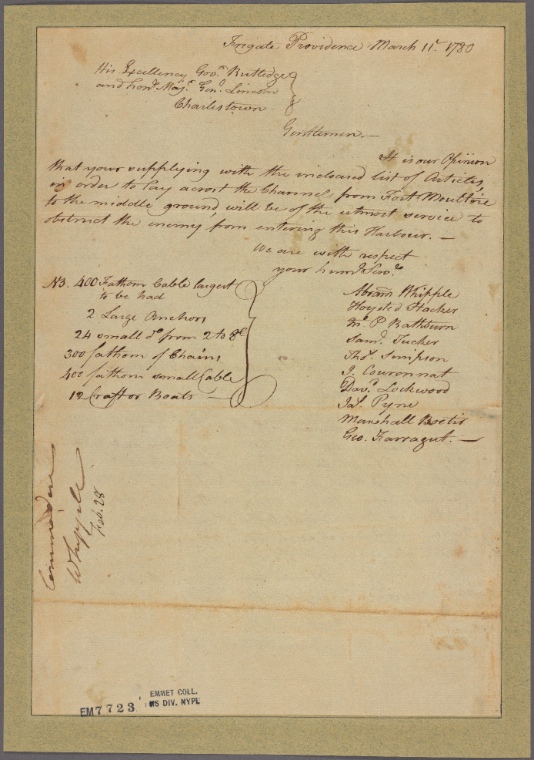 Frigate Providence March 11th. 1780
His Excellency Govr. Rutledge
and Honl. Majr. Genl. Lincoln
Charlestown
Gentlemen.—
It is our Opinion
that your supplying with the inclosed list of Articles,
in order to lay acrost the Channel, from Fort Moultrie
to the middle ground, will be of the utmost service to
obstruct the enemy from entering this Harbour.—
We are with respect
your humb. Servt.
NB. 400 Fathom Cable largest
to be had
2 Large Anchors
24 small Do. from 2 to 8C
300 fathom of Chains
400 fathom small Cable
12 Craft or Boats —
Abram Whipple
Hoysted Hacker
J. P. Rathburn
Saml. Tucker
Thos. Simpson
J. Couronnat
Davd. Lockwood
Jas. Pyne
Marshall Boetis
Geo. Farragut.—
Commodore
Whipple
Feb. 28
EM7723
EMMET COLL.
MS DIV. NYPL